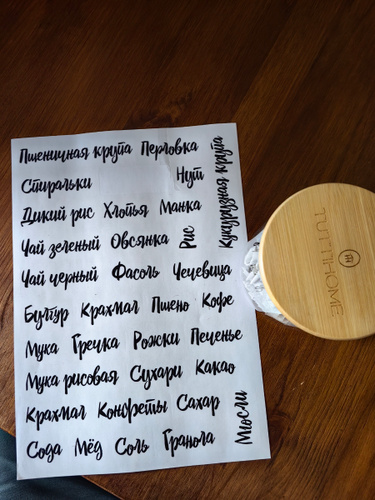 Пшеничная крупа Перловка
Спиральки Нут
Дикий рис Хлопья Манка
Кукурузная крупа
Чай зеленый Овсянка Рис
Чай черный Фасоль Чечевица
Булгур Крахмал Пшено Кофе
Мука Гречка Рожки Печенье
Мука рисовая Сухари Какао
Крахмал Конфеты Сахар
Мюсли
Сода Мёд Соль Гранола
TUTTIHOME